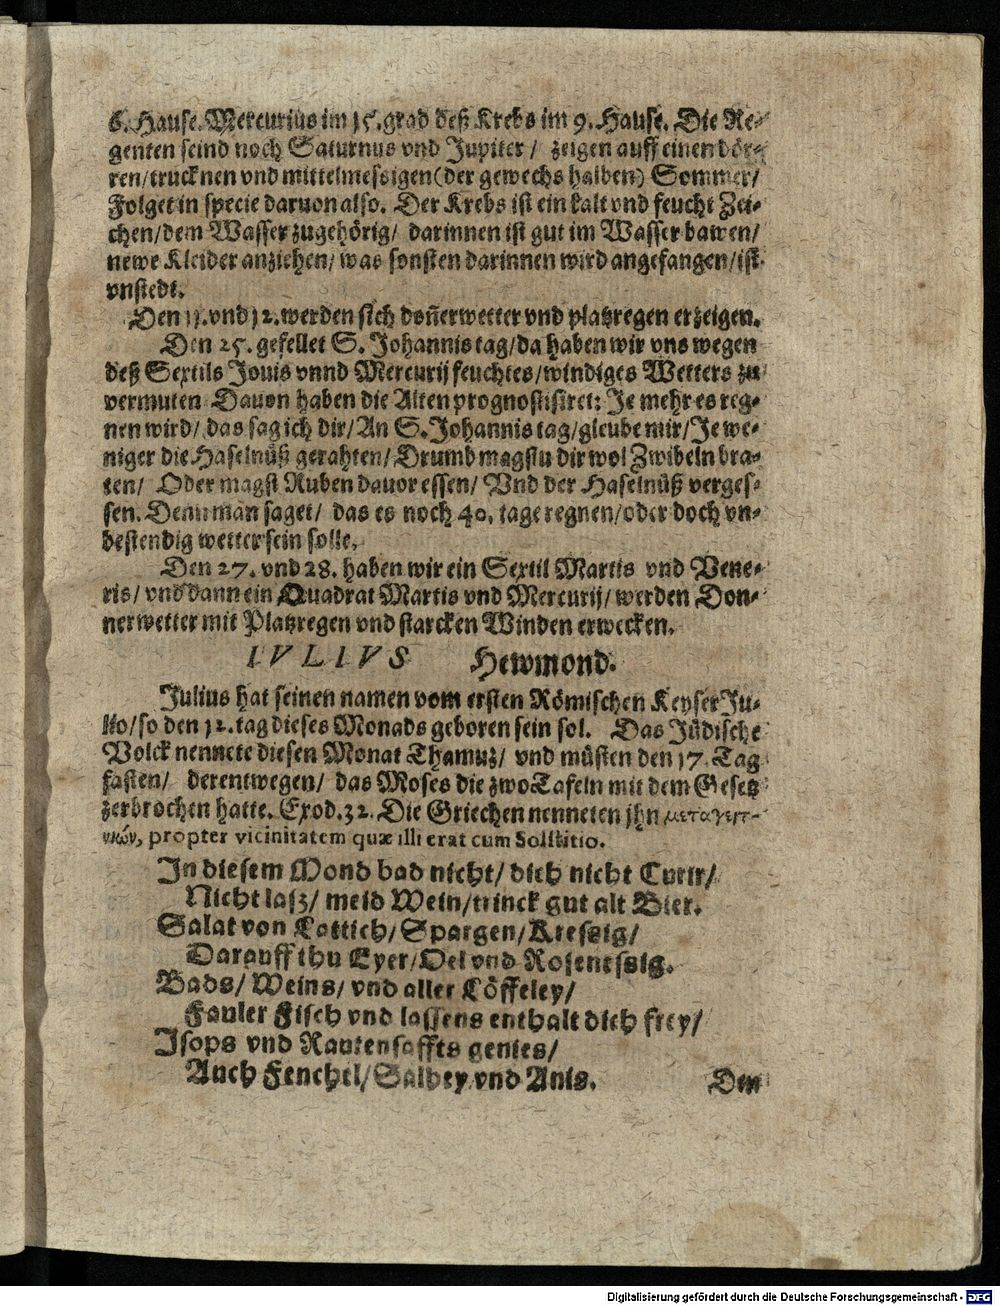 6. Hause. Mercurius im 15. grad deß Krebs im 9. Hause. Die Re-
genten seind noch Saturnus vnd Jupiter / zeigen auff einen dör-
ren/trucknen vnd mittelmessigen (der gewechs halben) Sommer/
Folget in specie daruon also. Der Krebs ist ein kalt vnd feucht Zei-
chen/dem Wasser zugehörig/ darinnen ist gut im Wasser bawen/
newe Kleider anziehen/ was sonsten darinnen wird angefangen/ist
vnstedt.
Den 11. vnd 12. werden sich doñerwetter vnd platzregen erzeigen.
Den 25. gefellet S. Johannis tag/da haben wir vns wegen
deß Sextils Jouis vnnd Mercurij feuchtes/windiges Wetters zu
vermuten Dauon haben die Alten prognostisiret: Je mehr es reg-
nen wird/ das sag ich dir/An S. Johannis tag/gleube mir/Je we-
niger die Haselnüß gerahten/Drumb magstu dir wol Zwibeln bra-
ten/ Oder magst Ruben dauor essen/ Vnd der Haselnüß verges-
sen. Denn man saget/ das es noch 40. tage regnen/oder doch vn-
bestendig wetter sein solle.
Den 27. vnd 28. haben wir ein Sextil Martis vnd Vene-
ris/ vnd dann ein Quadrat Martis vnd Mercurij/ werden Don-
nerwetter mit Platzregen vnd starcken Winden erwecken.
IVLIVS Hewmond.
Julius hat seinen namen vom ersten Römischen Keyser Ju-
lio/so den 12. tag dieses Monads geboren sein sol. Das Jüdische
Volck nennete diesen Monat Thamuz/ vnd müsten den 17. Tag
fasten/ derentwegen/ das Moses die zwo Tafeln mit dem Gesetz
zerbrochen hatte. Exod. 32. Die Griechen nenneten jhn μεταγειτ-
νιών, propter vicinitatem quæ illi erat cum Solstitio.
In diesem Mond bad nicht/ dich nicht Curir/
Nicht lasz/ meid Wein/trinck gut alt Bier.
Salat von Lattich/Spargen/Kressig/
Darauff thu Eyer/Oel vnd Rosenessig.
Bads/ Weins/ vnd aller Löffeley/
Fauler Fisch vnd lassens enthalt dich frey/
Isops vnd Rautensaffts genies/
Auch Fenchel/Salbey vnd Anis. Den
Digitalisierung gefördert durch die Deutsche Forschungsgemeinschaft - DFG